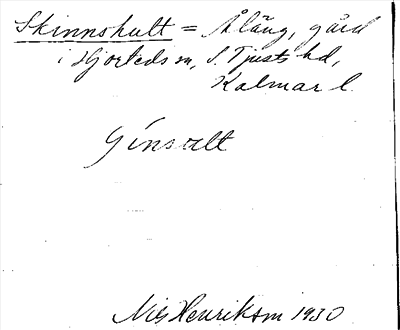 Skinnshult = Åläng, gård
i Hjorteds sn, S. Tjusts hd,
Kalmar l.
Nils Henriksson 1930